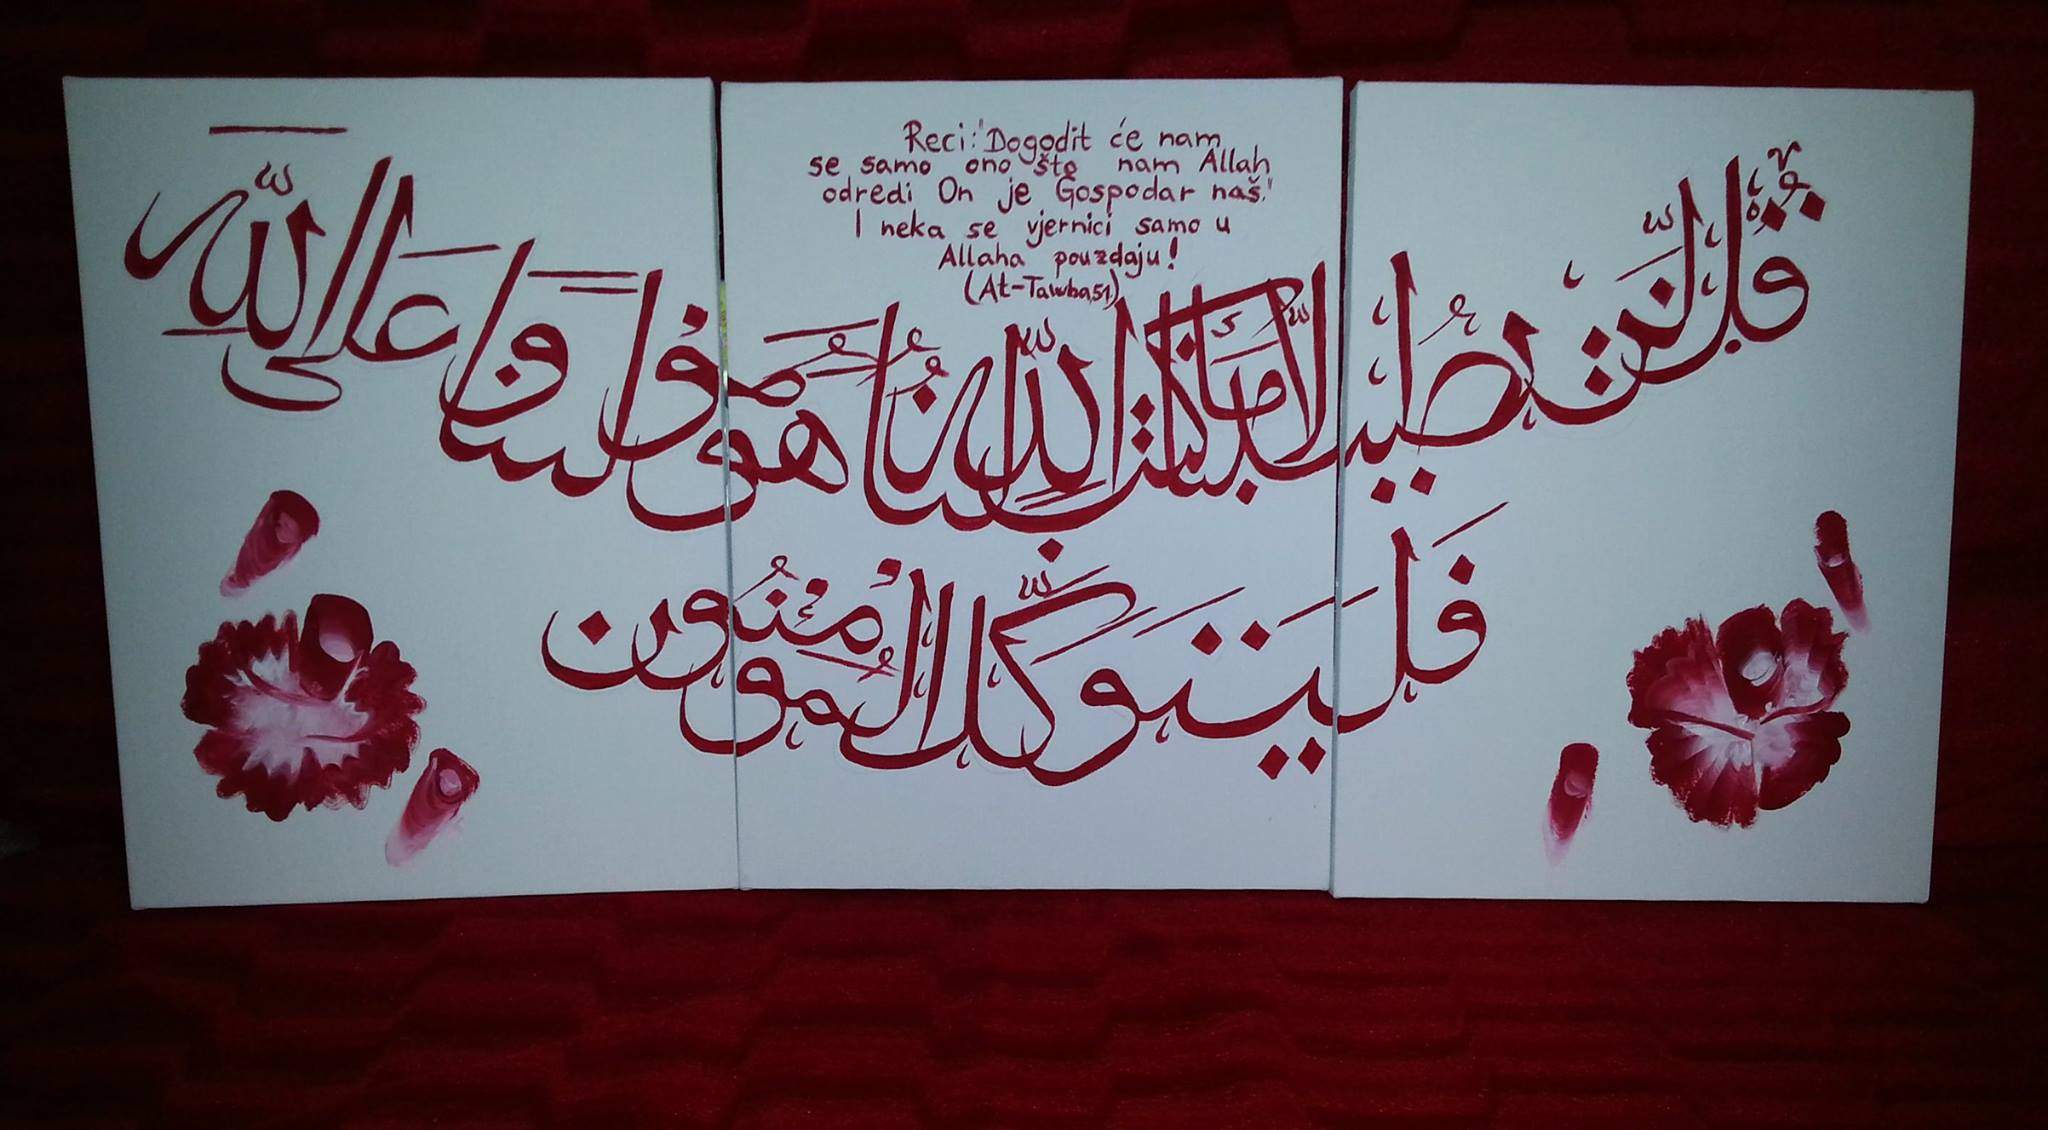 Reci:"Dogodit će nam
se samo ono što nam Allah
odredi On je Gospodar naš."
I neka se vjernici samo u
Allaha pouzdaju!
(At-Tawba51)
قُل لَّن يُصِيبَنَا إِلَّا مَا كَتَبَ اللَّهُ لَنَا هُوَ مَوْلَانَا وَعَلَى اللَّهِ
فَلْيَتَوَكَّلِ الْمُؤْمِنُونَ